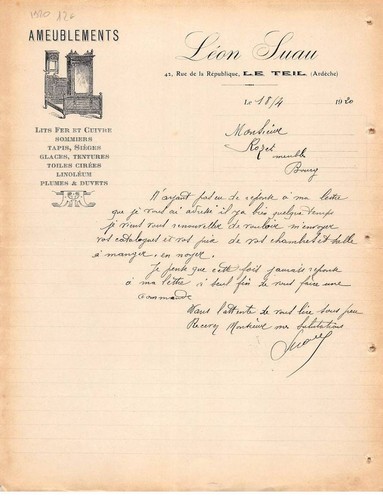 1920 126
AMEUBLEMENTS
Léon Suau
42, Rue de la République, LE TEIL (Ardèche)
Le 18/4 1920
LITS FER ET CUIVRE
SOMMIERS
TAPIS, SIÈGES
GLACES, TENTURES
TOILES CIRÉES
LINOLÉUM
PLUMES & DUVETS
Monsieur
Rozet
meubles
Bourg
N'ayant pas eu de reponse à ma lettre
que je vous ai adressé il y a bien quelque temps
je viens vous renouveller de vouloir m'envoyer
vos catalogues et vos prix de vos chambres et salle
à manger en noyer.
Je pense que cette fois j'aurais reponse
à ma lettre à seul fin de vous faire une
commande
Dans l'attente de vous lire sous peu
Recevez Monsieur mes Salutations
Suau